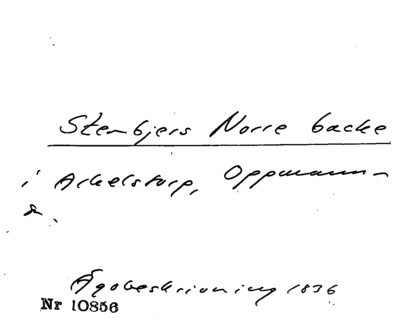 Stenbjers Norre backe
i Arkelstorp, Oppmanna
s.
Ägobeskrivning 1836
Nr 10856